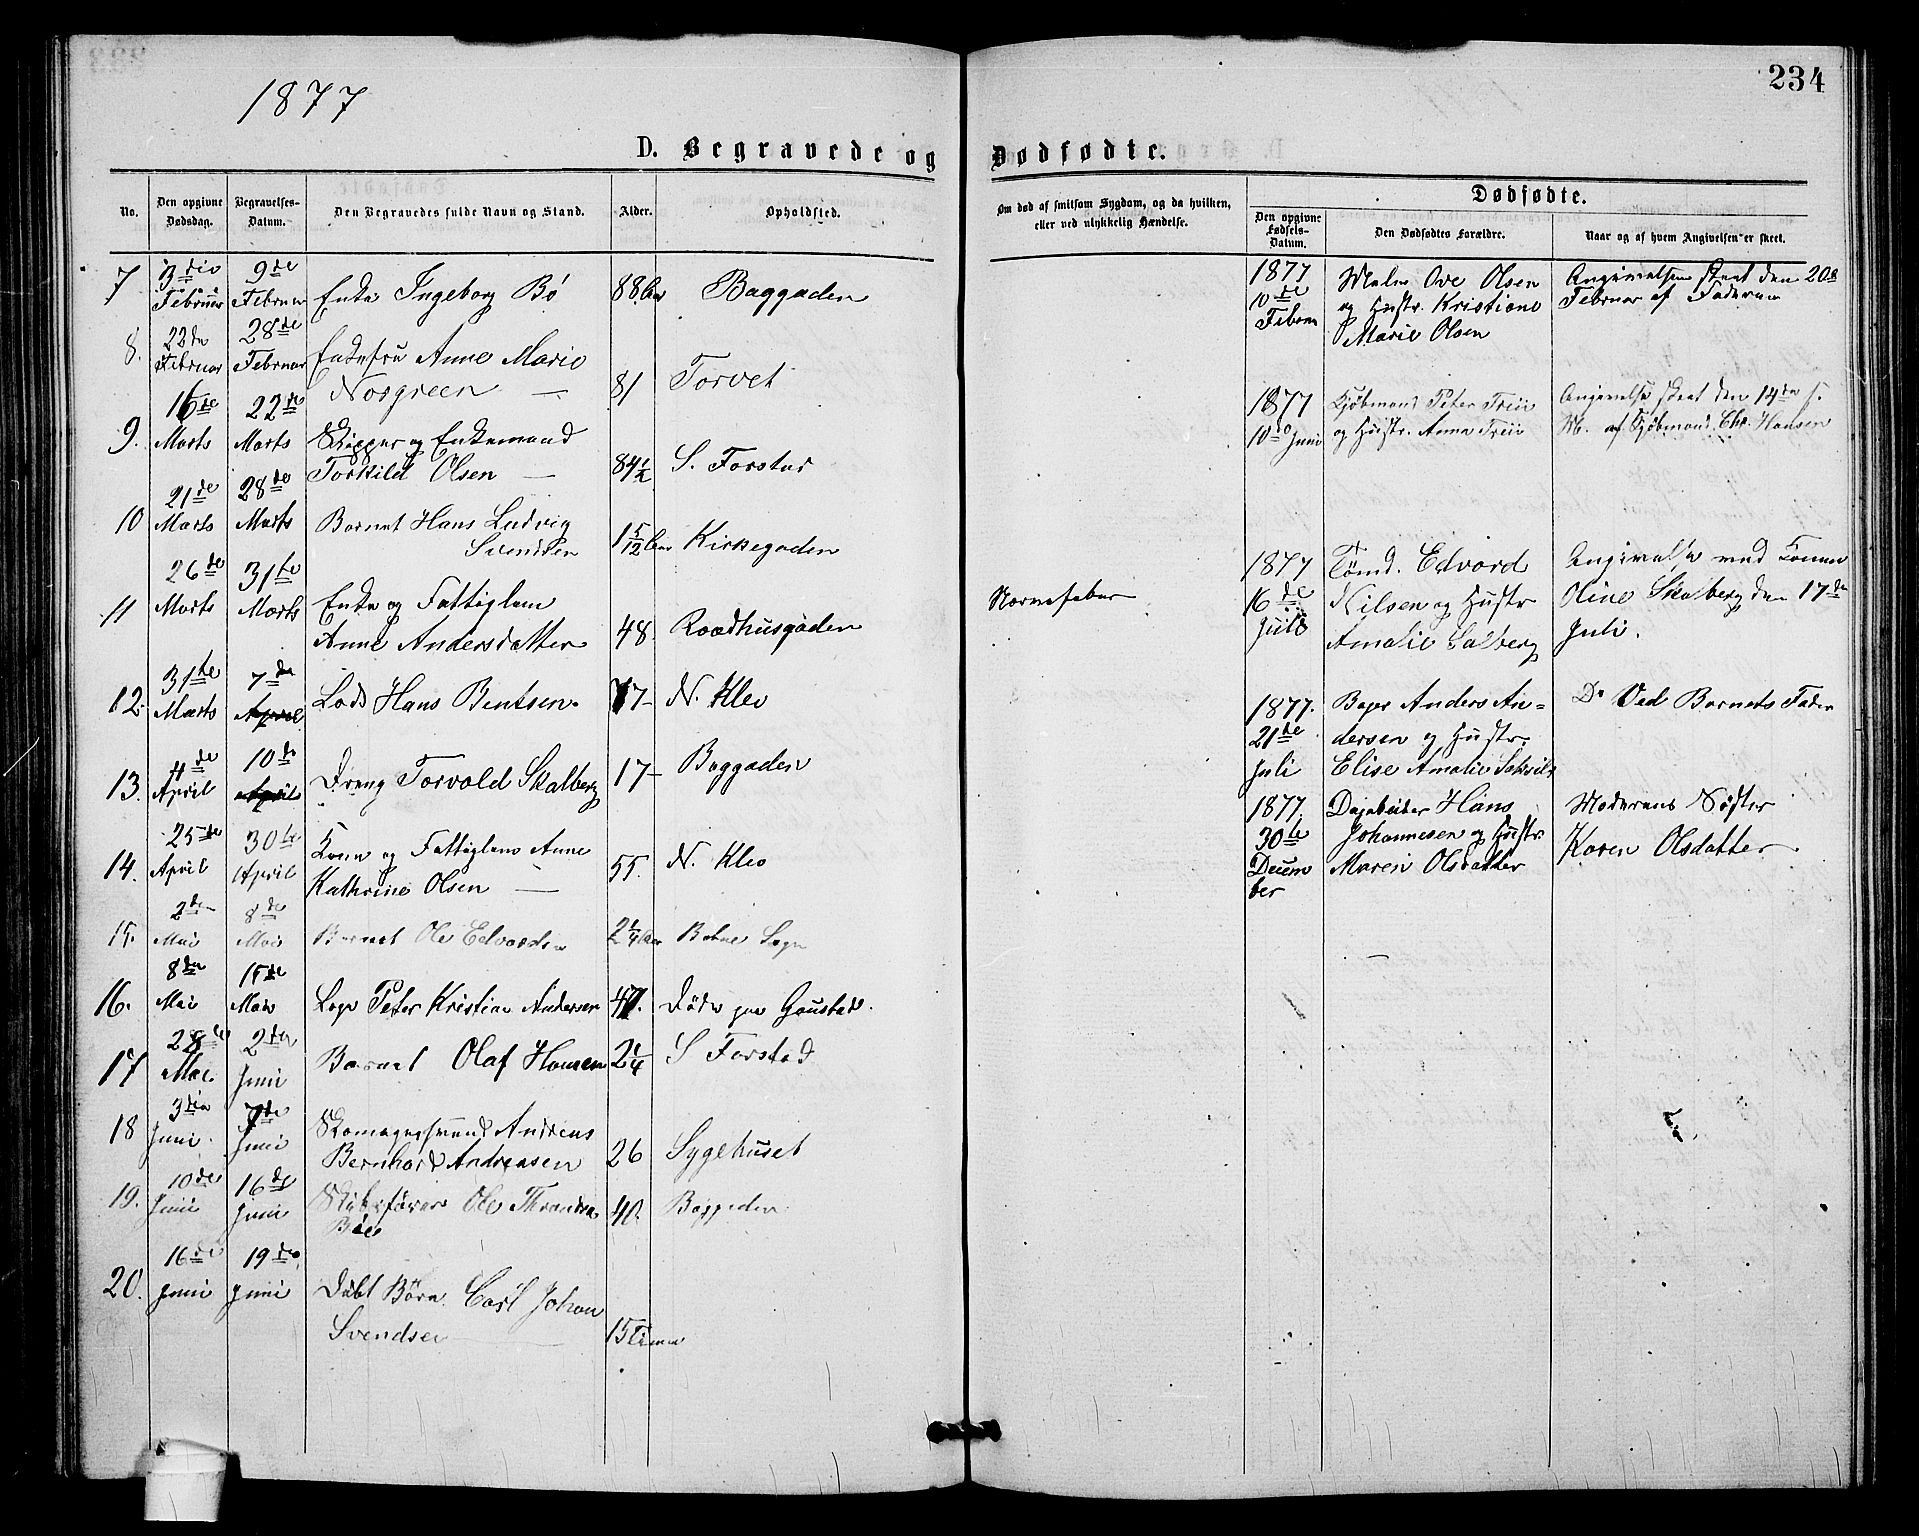 1877
234
D. Begravede og Dødfødte.
No.
Den opgivne Dødsdag.
Begravelses-Datum.
Den Begravedes fulde Navn og Stand.
Alder.
Opholdsted.
Om død af smitsom Sygdom, og da hvilken,
eller ved ulykkelig Hændelse.
Dødfødte.
Den opgivne Fødsels-Datum.
Den Dødfødtes Forældre.
Naar og af hvem Angivelsen er skeet.
7 3die Februar 9de Februar Enke Ingeborg Bø 88 Aar Baggaden
8. 22de Februar 28de Februar Enkefru Anne Marie
Norgreen — 81 Torvet
9. 16de Marts 22de Marts Skipper og Enkemand
Torkild Olsen — 84 1/2 S. Forstad
10 21de Marts 28de Marts Barnet Hans Ludvig
Svendsen 1 5/12 Aar Kirkegaden
11 26de Marts 31te Marts Enke og Fattiglem
Anne Andersdatter 48. Raadhusgaden Nervefeber
12. 31te Marts 7de April Lods Hans Bentsen. 77- N. Klev
13. 4de April 10de April Dreng Torvald Skalberg 17- Baggaden
14. 25de April 30te April Kone og Fattiglem Anne
Kathrine Olsen — 55. N. Klev
15. 2de Mai 8de Mai Barnet Ole Edvardsen 2 1/4 Aar Sogn
16. 8de Mai 15de Mai Peter Kristian Andersen 47. Døde paa Gaustad.
17 28de Mai 2den Juni Barnet Olaf Hansen 2 1/4 S Forstad
18 3die Juni. 7de Juni Skomagersvend Andreas
Bernhard Andreasen 26 Sygehuset
19. 10de Juni 16de Juni Skibsfører Ole Thrandsen
Bøe 40. Baggaden
20. 16de Juni 19de Juni Døbt Børn. Carl Johan
Svendsen 15 Timer
1877
10de
Februar
Maler Ove Olsen
og Hustr. Kristiane
Marie Olsen
Angivelsen skeet den 20de
Februar af Faderen
1877
10de Juni
Kjøbmand Peter
og Hustr. Anna
Angivelse skeet den 14de s.
M. af Kjøbmand Chr. Hansen
1877
16de
Juli
Tømd. Edvard
Nilsen og Hustr
Amalie Salberg
Angivelse ved Konen
Oline Skalberg den 17de
Juli.
1877.
21de
Juli
Bager Anders An=
dersen og Hustr.
Elise Amalie
Do Ved Barnets Fader
1877.
30te
Decem
ber
Dagarbeider Hans
Johannesen og Hustr
Maren Olsdatter
Moderens Søster
Karen Olsdatter.